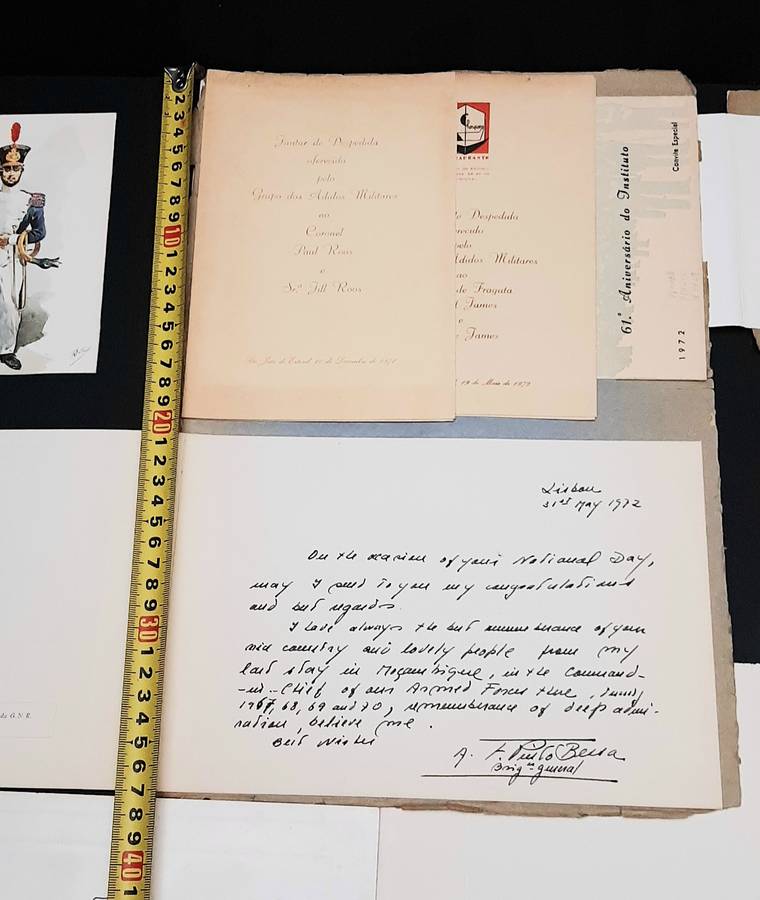 Jantar de Despedida
oferecido
pelo
Grupo dos Adidos Militares
ao
Coronel
Paul Roos
e
Srª Jill Roos
de Dezembro de
Despedida
Adidos Militares
ao
de Fragata
James
e
James
19 de Maio de 1972
61.º Aniversário do Instituto
Convite Especial
1972
Lisbon
31st May 1972
On the occasion of your National Day,
may I send to you my congratulations
and best regards.
I have always the best remembrance of your
nice country and lovely people from my
last stay in Moçambique, in the Command-
-in-Chief of our Armed Forces there, during
1967, 68, 69 and 70, remembrance of deep admi-
ration, believe me.
Best Wishes
A. F. Pinto Bessa
Brig. General
da G.N.R.
2 3 4 5 6 7 8 9 10 1 2 3 4 5 6 7 8 9 20 1 2 3 4 5 6 7 8 9 30 1 2 3 4 5 6 7 8 9 40 1